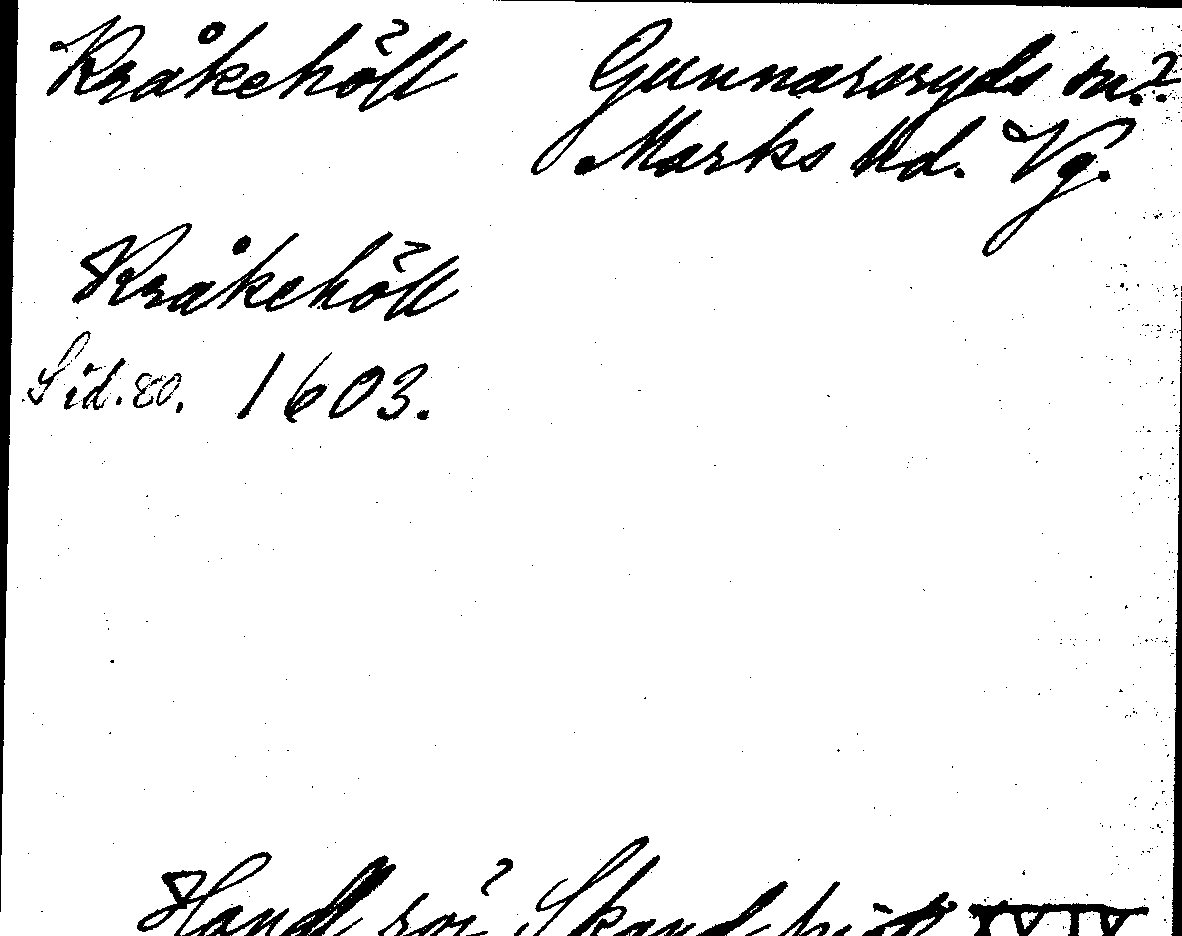 Kråkehöll Gunnarsryds sn.?
Marks hd. Vg.
Kråkehöll
Sid. 80. 1603.
Handl. rör. Skand. hist. XXIV